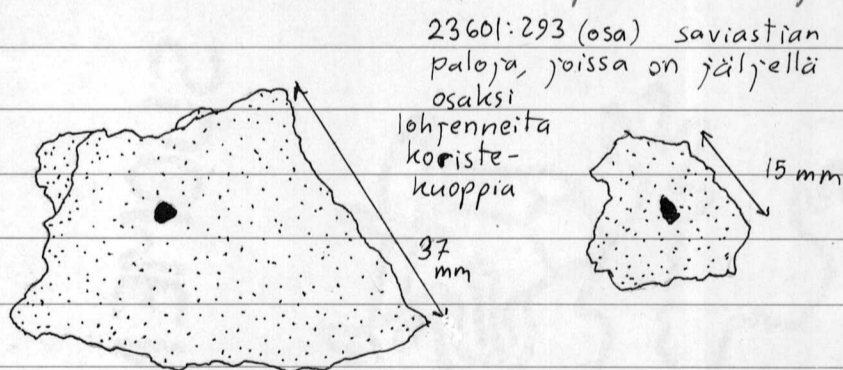 23601:293 (osa) saviastian
paloja, joissa on jäljellä
osaksi
lohjenneita
koriste-
kuoppia
15 mm
37
mm